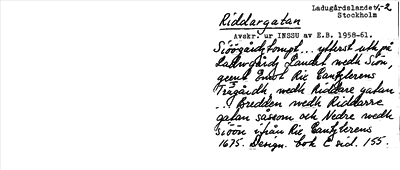 Ladugårdslandet 1-2
Stockholm
Riddargatan
Avskr. ur INSSU av E.B. 1958-61.
Siöögårdz tompt... ytterst uth på
Ladugårdz Landet wedh Siön,
gent Emot Rix Cantzlerens
Trägårdh, wedh Riddare gatan
... Bredden wedh Riddarre
gatan såssom och Nedre wedh
siöön ifrån Rix Cantzlerens
1675. Design. bok E sid. 155.